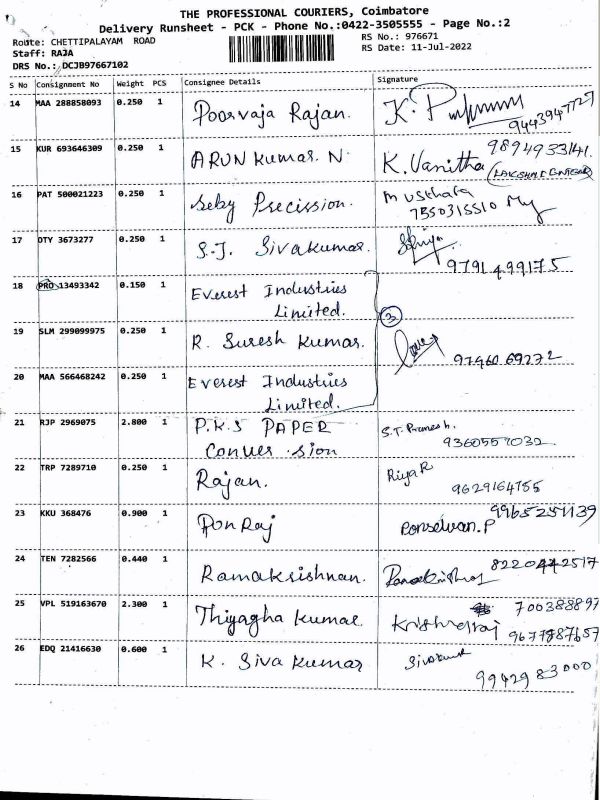 THE PROFESSIONAL COURIERS, Coimbatore
Delivery Runsheet - PCK - Phone No.:0422-3505555 - Page No.:2
Route: CHETTIPALAYAM ROAD
RS No.: 976671
Staff: RAJA
RS Date: 11-Jul-2022
DRS No.: DCJB97667102
S No Consignment No Weight PCS Consignee Details Signature
14 MAA 288858093 0.250 1 Poorvaja Rajan. K.
9443947727
15 KUR 693646309 0.250 1 ARUN Kumar. N. K. Vanitha 9894933141.
16 PAT 500021223 0.250 1 Seby Precission. Musthafa
7550315510
17 OTY 3673277 0.250 1 S.J. Sivakumar.
9791499175
18 PRO 13493342 0.150 1 Everest Industries
Limited.
3
19 SLM 299099975 0.250 1 R. Suresh Kumar.
97960 69272
20 MAA 566468242 0.250 1 Everest Industries
Limited.
21 RJP 2969075 2.800 1 P.K.S PAPER S.T. Pramesh.
Conver sion 9360557032
22 TRP 7289710 0.250 1 Rajan. Riya R
9629164755
23 KKU 368476 0.900 1 Pon Raj Ponselvan.P 9965251139
24 TEN 7282566 0.440 1 Ramakrishnan. 8220442517
25 VPL 519163670 2.300 1 Thiyagha Kumar. Krishnaraj 700388897
9677987657
26 EDQ 21416630 0.600 1 K. Siva Kumar Sivakumar
9942983000